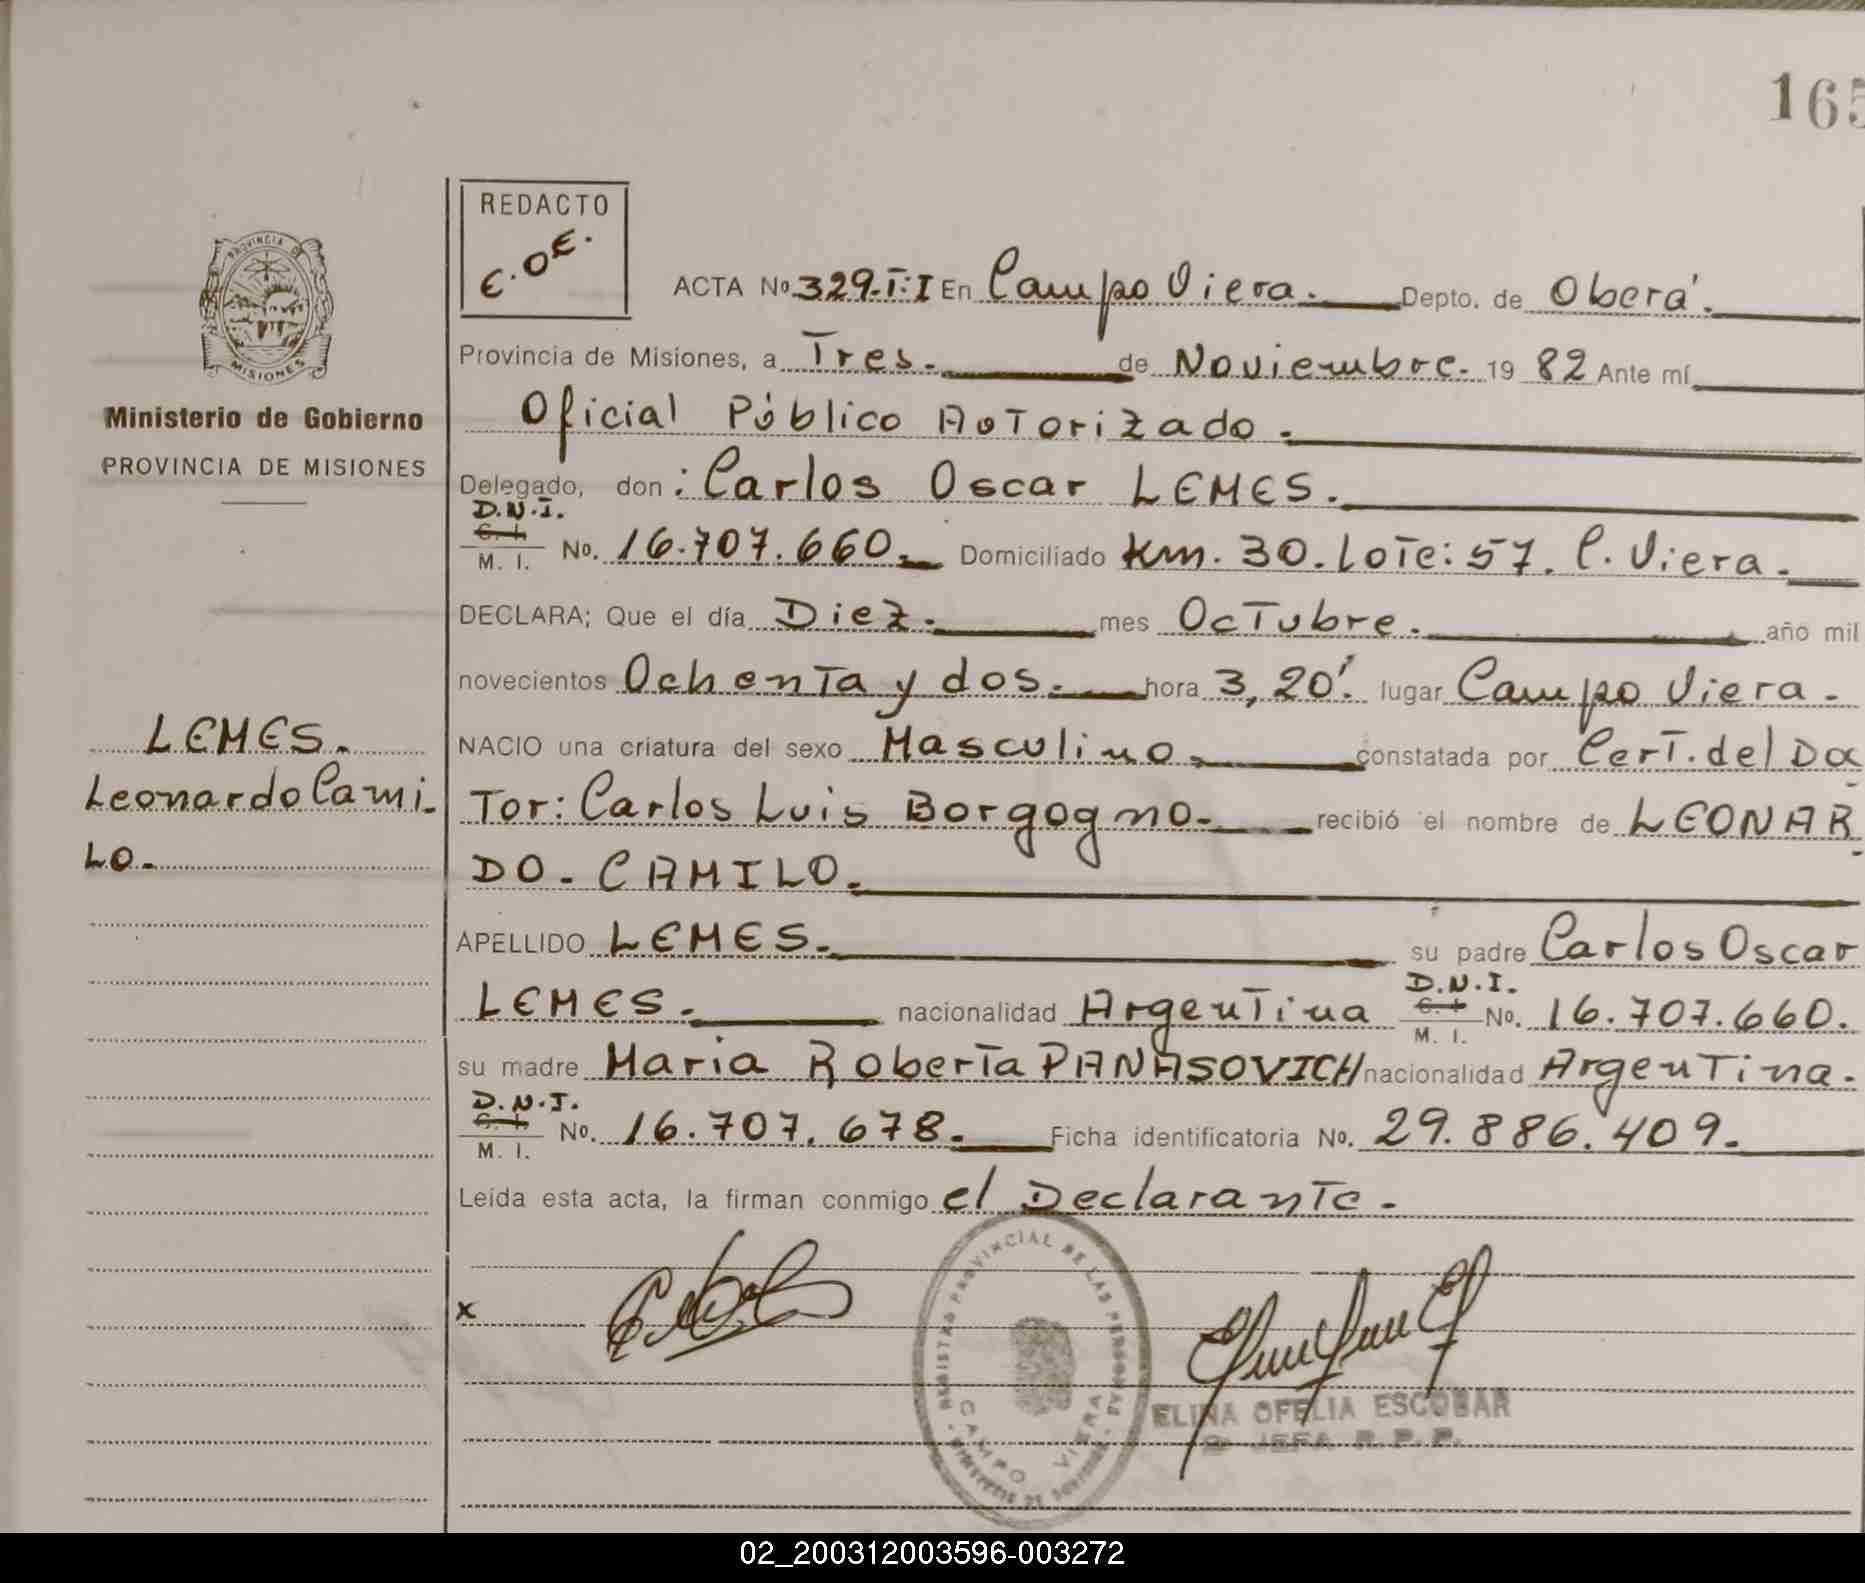 165
REDACTO
E.O.E.
PROVINCIA D
MISIONES
Ministerio de Gobierno
PROVINCIA DE MISIONES
LEMES.
Leonardo Cami-
Lo.
ACTA No 329-T:I En Campo Viera. Depto. de Oberá.
Provincia de Misiones, a Tres. de Noviembre. 19 82 Ante mí
Oficial Público Autorizado.
Delegado, don: Carlos Oscar LEMES.
D.N.I.
C. I.
M. I. No. 16.707.660. Domiciliado Km. 30. Lote: 57. C. Viera.
DECLARA; Que el día Diez. mes Octubre. año mil
novecientos Ochenta y dos. hora 3,20'. lugar Campo Viera.
NACIO una criatura del sexo Masculino. constatada por Cert. del Doc-
Tor: Carlos Luis Borgogno. recibió el nombre de LEONAR-
DO. CAMILO.
APELLIDO LEMES. su padre Carlos Oscar
LEMES. nacionalidad Argentina D.N.I. C. I. M. I. No. 16.707.660.
su madre Maria Roberta PANASOVICH nacionalidad Argentina.
D.N.I.
C. I.
M. I. No. 16.707.678. Ficha identificatoria No. 29.886.409.
Leída esta acta, la firman conmigo el Declarante.
x
REGISTRO PROVINCIAL DE LAS PERSONAS
CAMPO VIERA
ELINA OFELIA ESCOBAR
JEFA R.P.P.
02_200312003596-003272